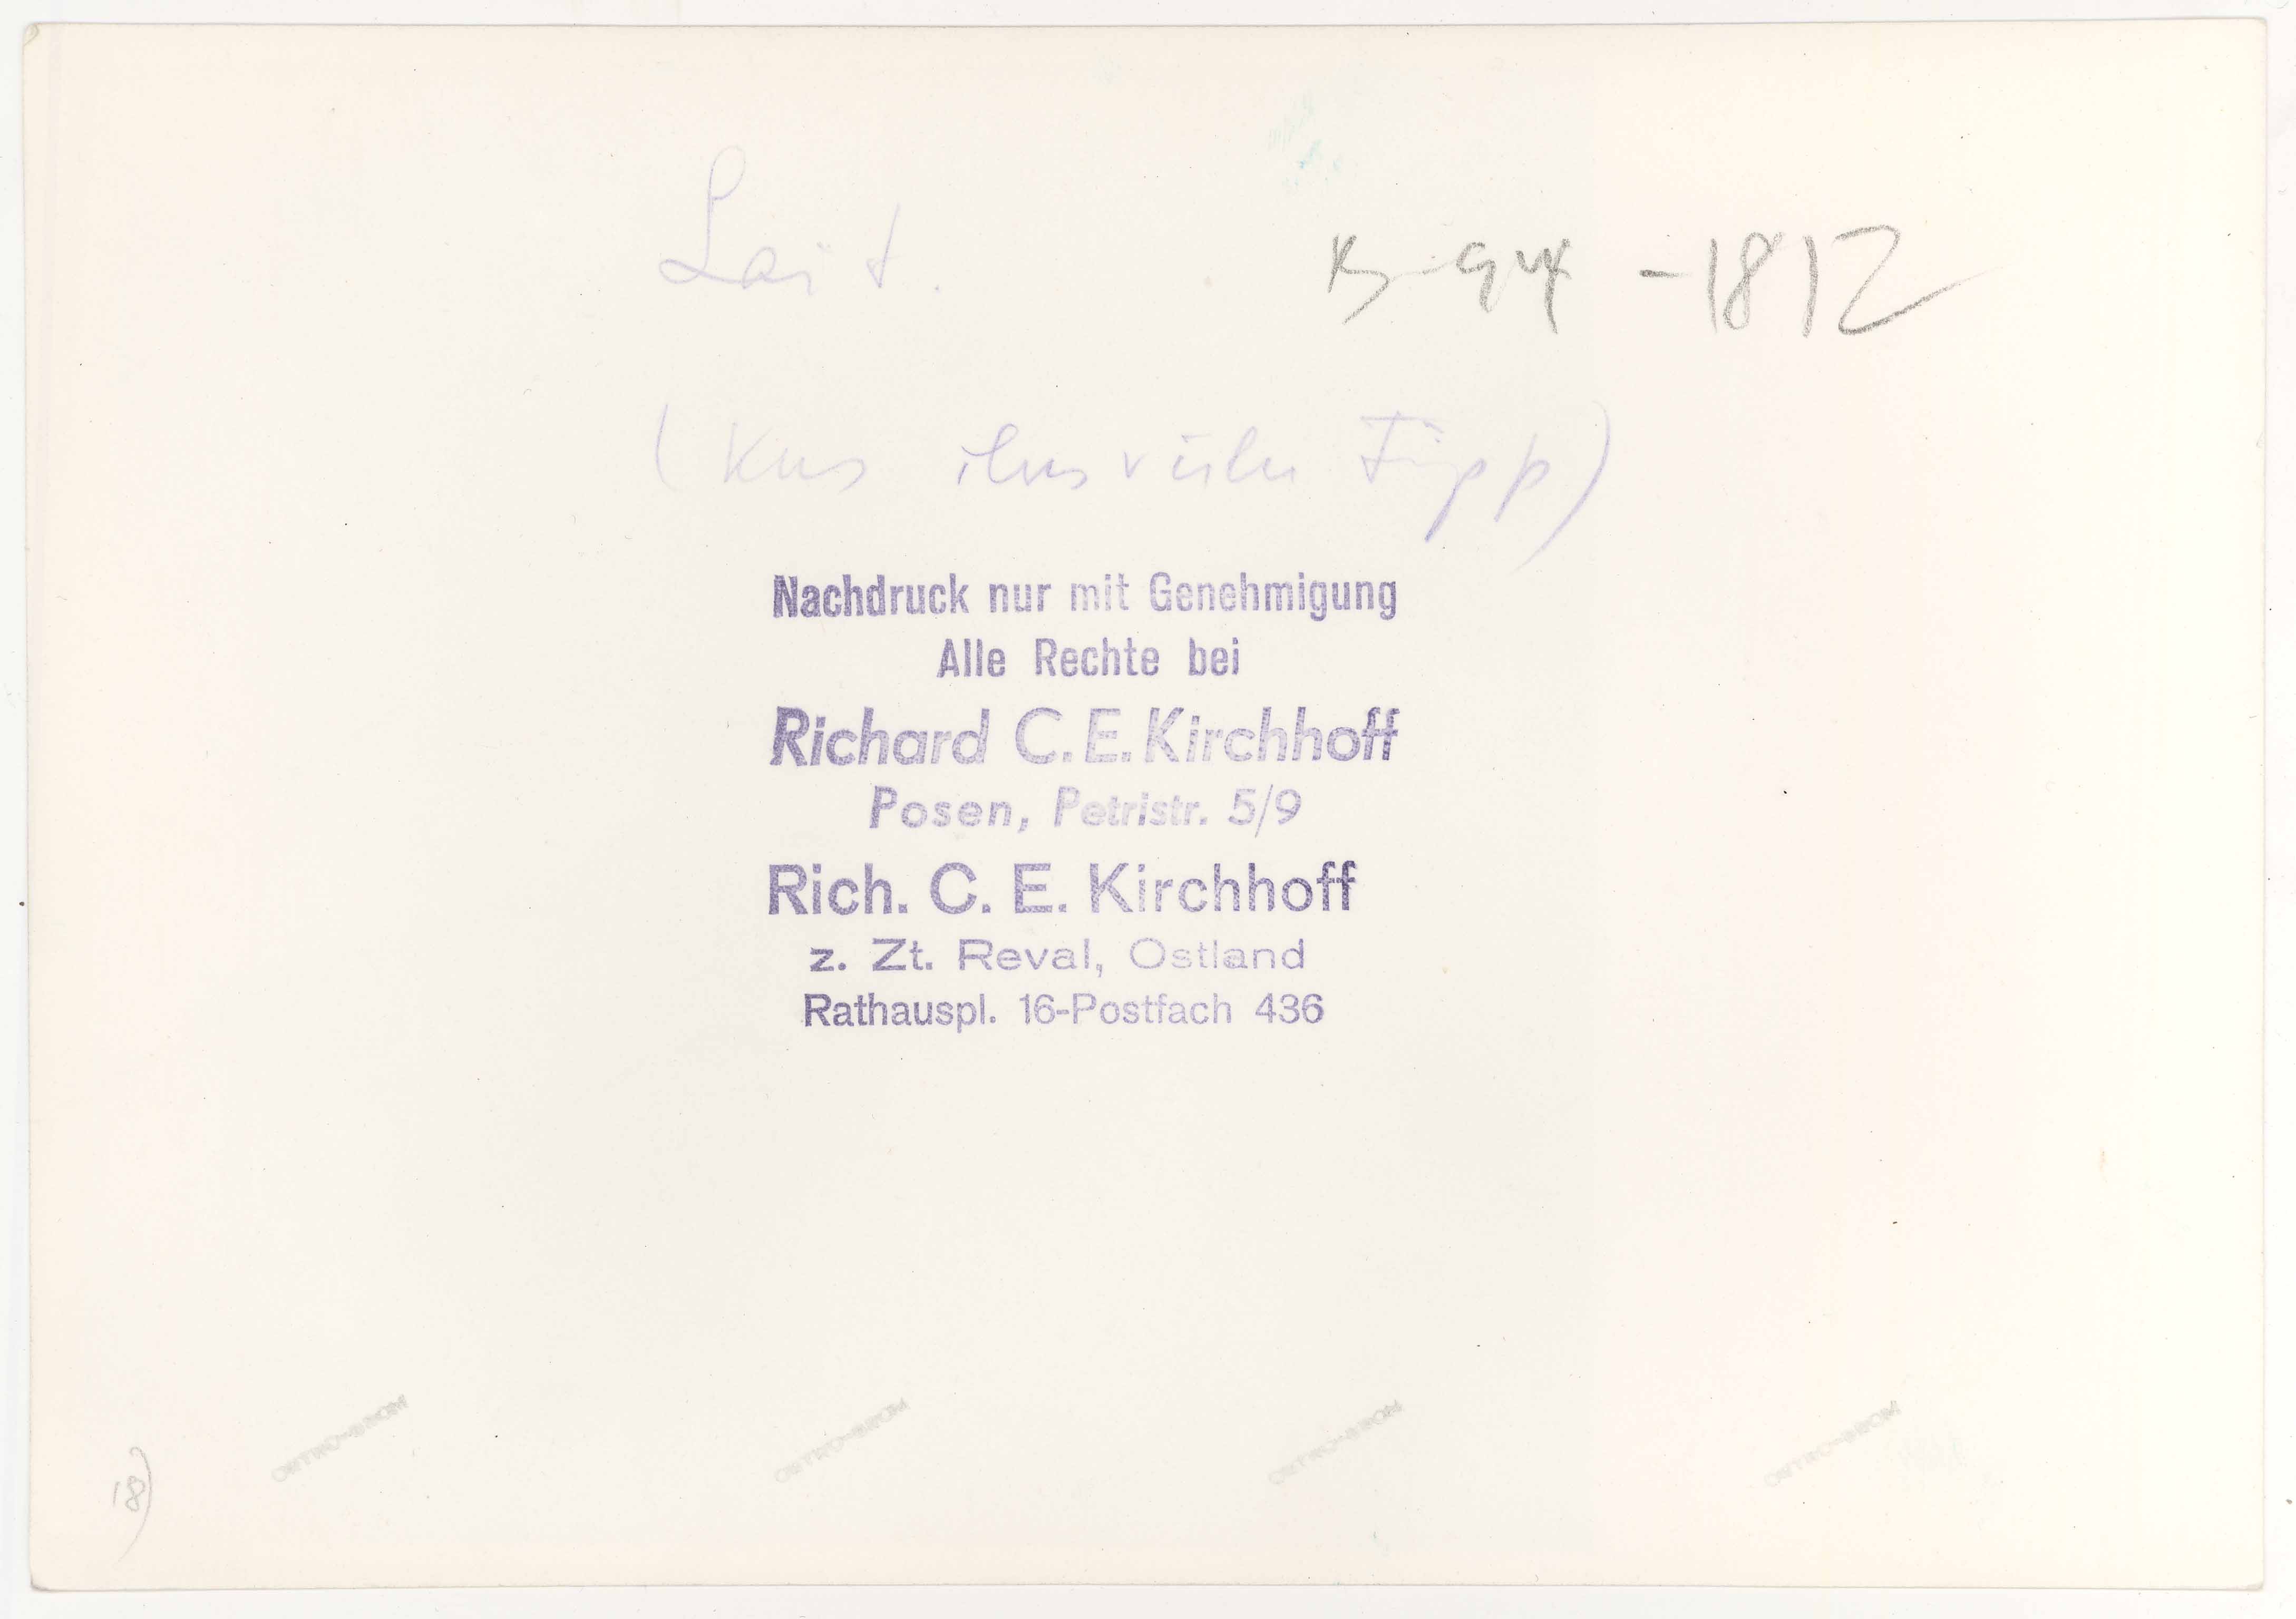 Lait.
-1812
(Kus ilus vaile Tüpp)
Nachdruck nur mit Genehmigung
Alle Rechte bei
Richard C. E. Kirchhoff
Posen, Petristr. 5/9
Rich. C. E. Kirchhoff
z. Zt. Reval, Ostland
Rathauspl. 16-Postfach 436
ORTHO-BROM ORTHO-BROM ORTHO-BROM ORTHO-BROM
18)